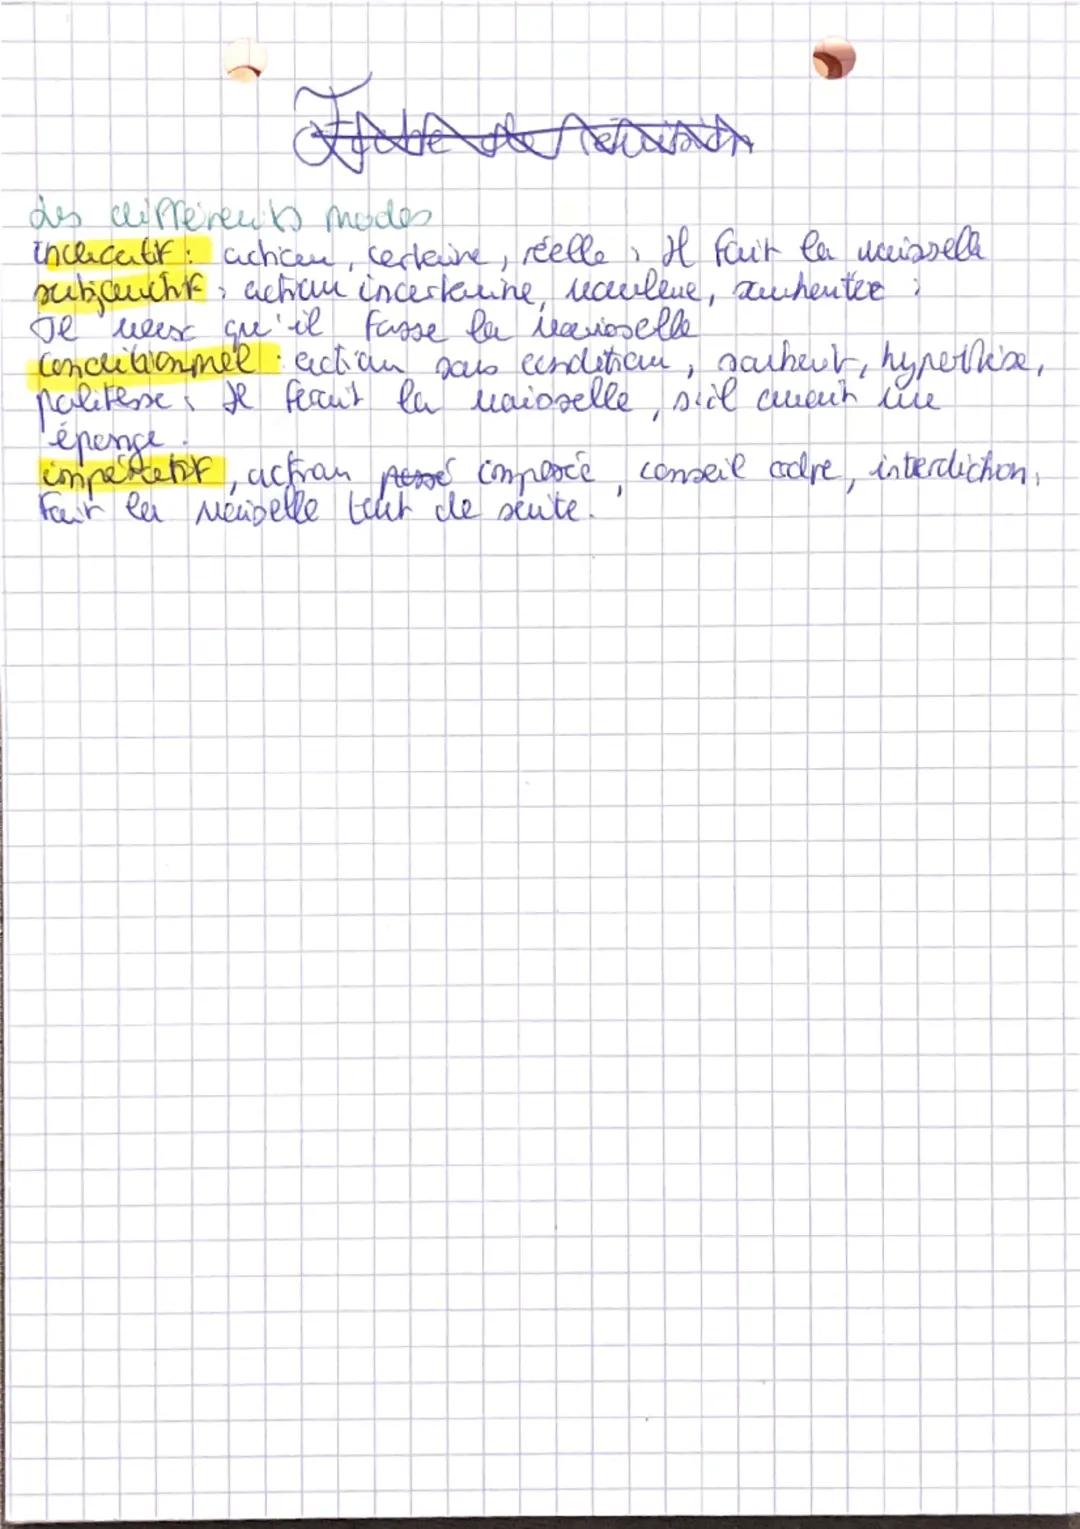 Fiche de révision
Les différents modes
indicatif : action, certaine, réelle ; Il fait la vaisselle
subjonctif ; action incertaine, voulue, souhaitée ;
Je veux qu'il fasse la vaisselle
conditionnel : action sous condition, souhait, hypothèse,
politesse ; Il ferait la vaisselle, s'il avait une
éponge.
impératif, action imposée, conseil, ordre, interdiction,
fait la vaisselle tout de suite.